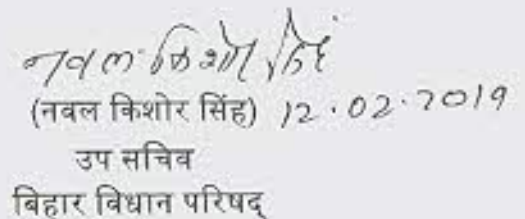 नवल किशोर सिंह
(नबल किशोर सिंह) 12.02.2019
उप सचिव
बिहार विधान परिषद्